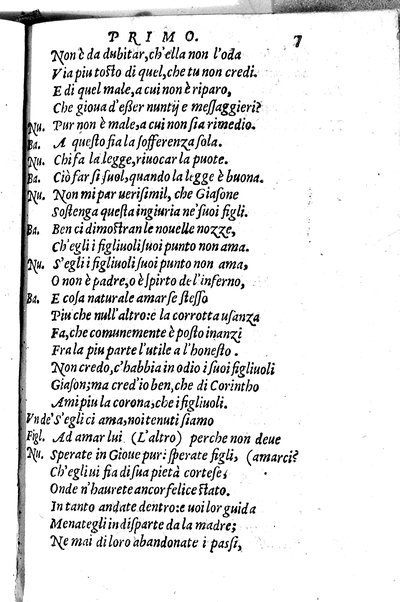 PRIMO. 7
Non è da dubitar, ch'ella non l'oda
Via piu tosto di quel, che tu non credi.
E di quel male, a cui non è riparo,
Che gioua d'eßer nuntij e messaggieri?
Nu. Pur non è male, a cui non sia rimedio.
Ba. A questo fia la sofferenza sola.
Nu. Chi fa la legge, riuocar la puote.
Ba. Ciò far si suol, quando la legge è buona.
Nu. Non mi par uerisimil, che Giasone
Sostenga questa ingiuria ne' suoi figli.
Ba. Ben ci dimostran le nouelle nozze,
Ch'egli i figliuoli suoi punto non ama.
Nu. S'egli i figliuoli suoi punto non ama,
O non è padre, o è spirto de l'inferno,
Ba. E cosa naturale amar se stesso
Piu che null'altro: e la corrotta usanza
Fa, che comunemente è posto inanzi
Fra la piu parte l'utile a l'honesto.
Non credo, c'habbia in odio i suoi figliuoli
Giason; ma cred'io ben, che di Corintho
Ami piu la corona, che i figliuoli.
Vn de' S'egli ci ama, noi tenuti siamo
Figl. Ad amar lui (L'altro) perche non deue
Nu. Sperate in Gioue pur: sperate figli, (amarci?
Ch'egli ui fia di sua pietà cortese,
Onde n'haurete ancor felice stato.
In tanto andate dentro: e uoi lor guida
Menategli in disparte da la madre;
Ne mai di loro abandonate i passi,